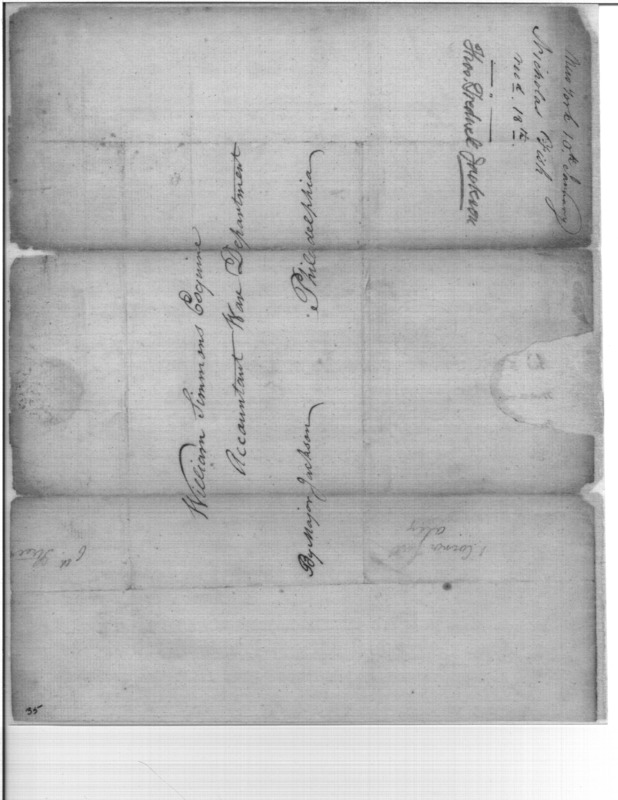 New York 10th January
Nicholas Fish
recd. 18th.
Thos. Jackson
William Simmons Esquire
Accountant War Department
Philadelphia
By Major Jackson
35